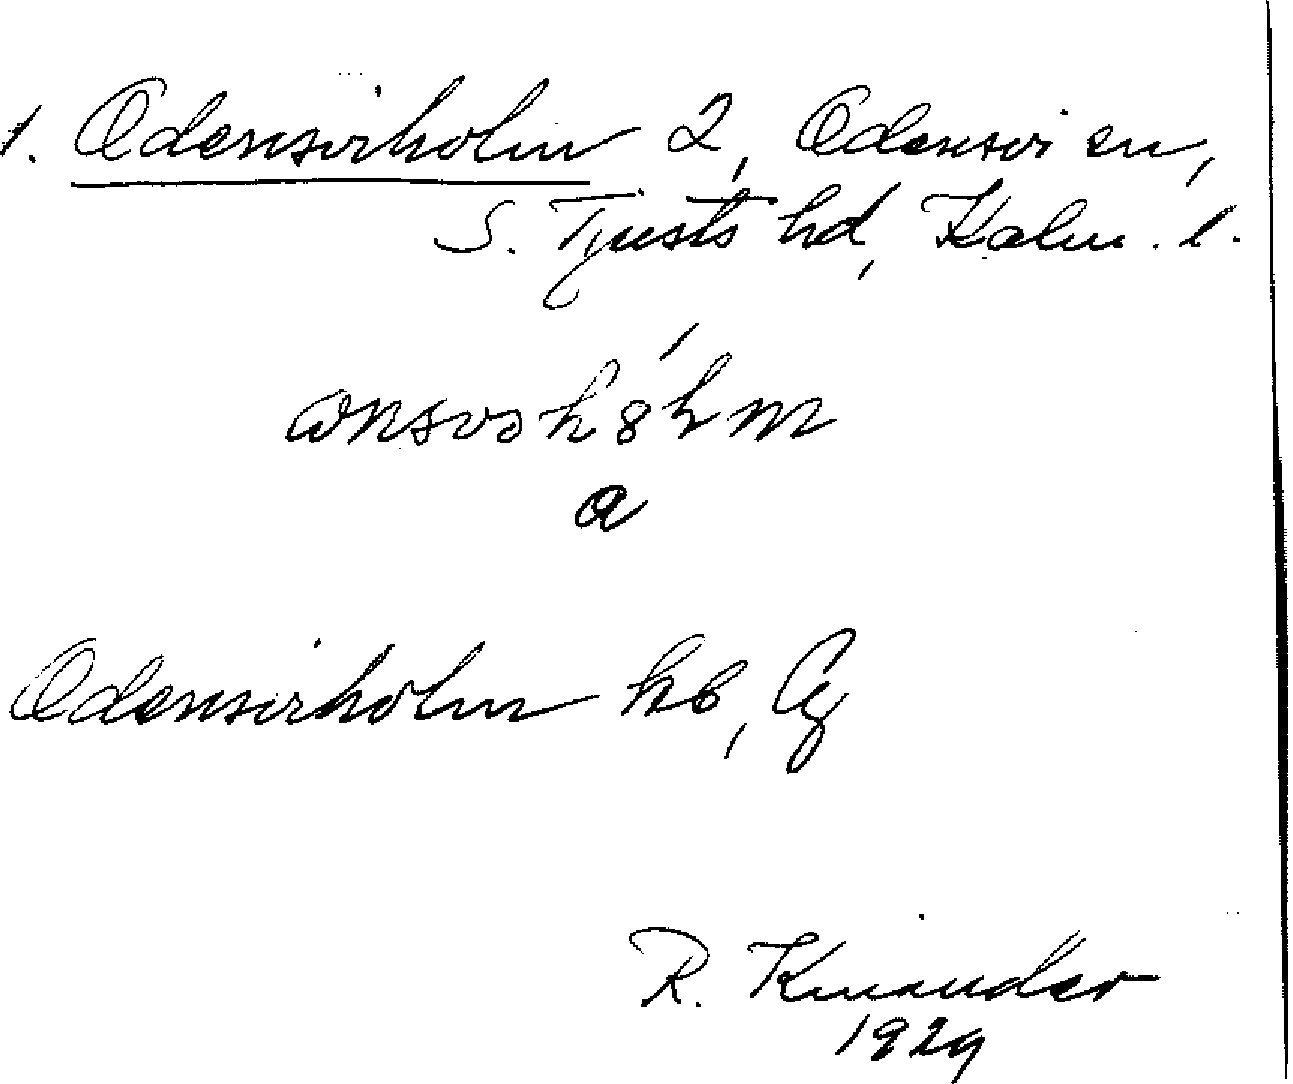 1. Odensviholm 2, Odensvi sn,
S. Tjusts hd, Kalm. l.
a
Odensviholm kb, Cg
R. Kinander
1929